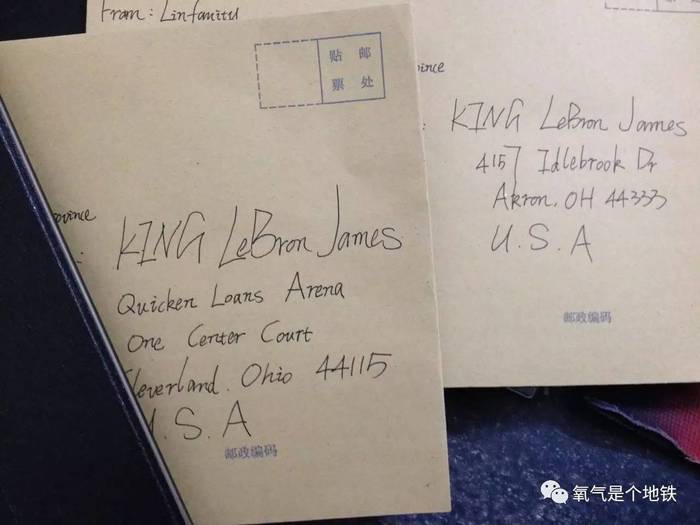 From: Linfanitu
贴 邮
票 处
ovince
:
KING LeBron James
Quicken Loans Arena
One Center Court
Cleverland. Ohio 44115
U.S.A
邮政编码
ince
:
KING LeBron James
4157 Idlebrook Dr
Akron, OH 44333
U.S.A
邮政编码
氧气是个地铁